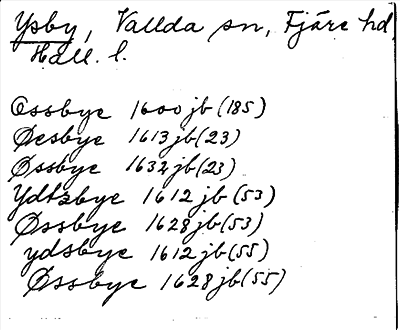 Ysby, Vallda sn, Fjäre hd,
Hall. l.
Ossbye 1600 jb (185)
Øesbye 1613 jb (23)
Øssbye 1632 jb (23)
Ydtzbye 1612 jb (53)
Øssbye 1628 jb (53)
ydsbye 1612 jb (55)
Øssbye 1628 jb (55)